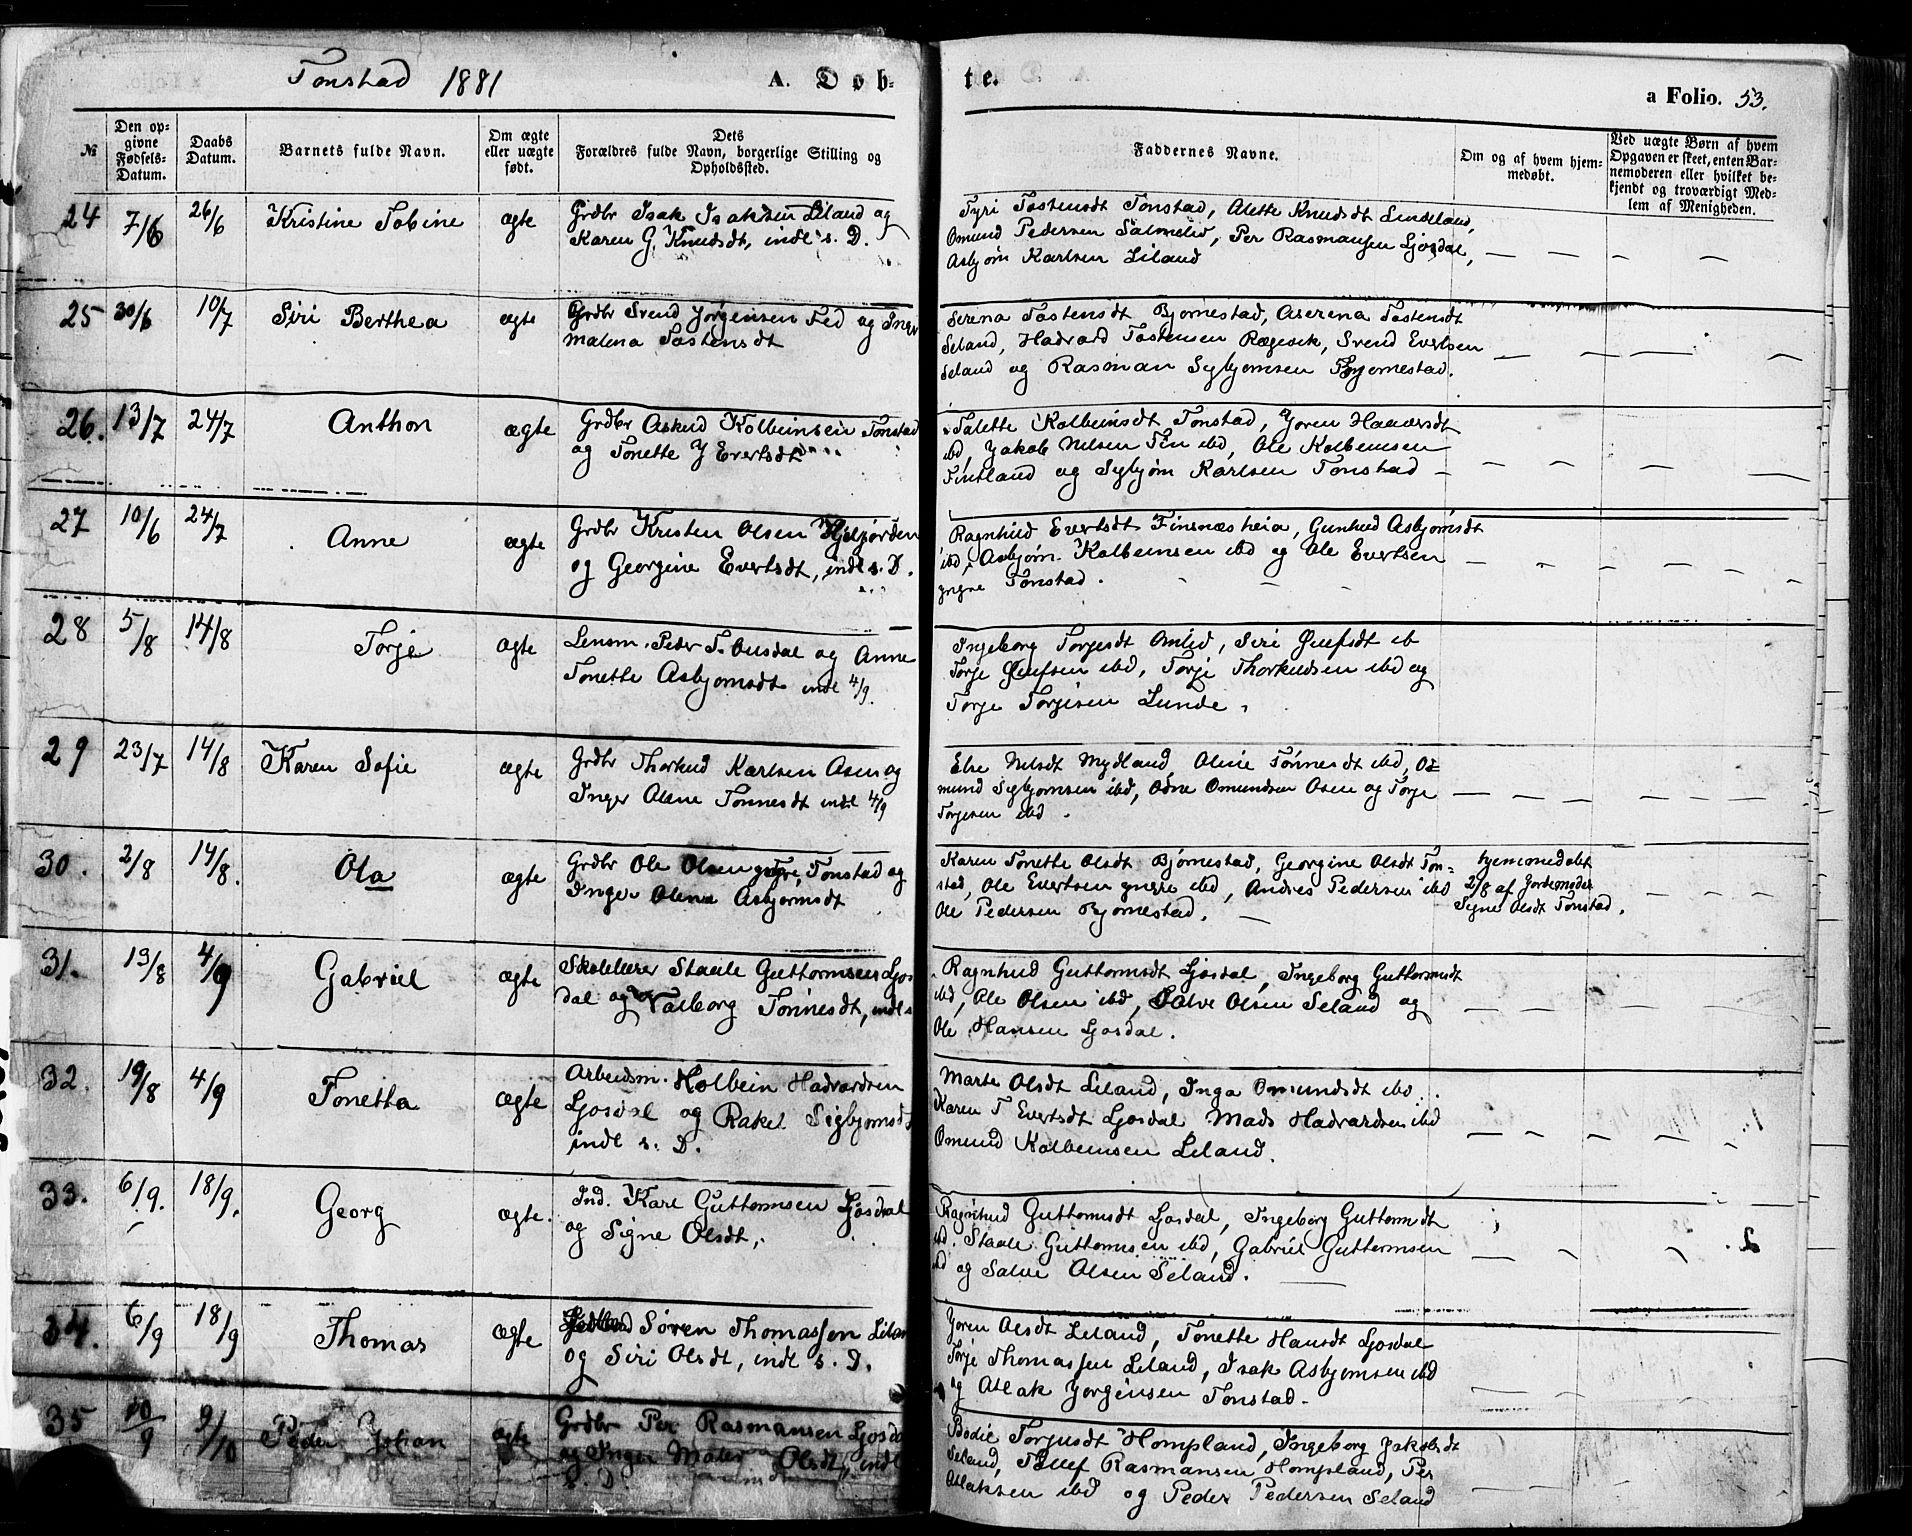 Tonstad 1881 A. Døb-
te.
a Folio. 53.
№
Den op-
givne
Fødsels-
Datum.
Daabs
Datum.
Barnets fulde Navn.
Om ægte
eller uægte
født.
Dets
Forældres fulde Navn, borgerlige Stilling og
Opholdssted.
Faddernes Navne.
Om og af hvem hjem-
medøbt.
Ved uægte Børn af hvem
Opgaven er skeet, enten Bar-
nemoderen eller hvilket be-
kjendt og troværdigt Med-
lem af Menigheden.
24 7/6 26/6 Kristine Tobine ægte Grdbr Isak Isaksen Liland og
Karen G. Knudsdt, indl s. D.
Tyri Tostensdt Tonstad, Alette Knudsdt Lindeland,
Omund Pedersen Salmeliv, Per Rasmansen Ljosdal,
Asbjørn Karlsen Liland
25 30/6 10/7 Siri Berthea ægte Grdbr Svend Jørgensen Fed og Inger
Malena Tostensdt
Serena Tostensdt Bjørnestad, Aserena Tostensdt
Seland, Hadvard Tostensen Rægevik, Svend Evertsen
Seland og Rasman Sybjørnsen Bjørnestad.
26. 13/7 24/7 Anthon ægte Grdbr Askild Kolbeinsen Tonstad
og Tonette J Evertsdt
Talette Kolbeinsdt Tonstad, Joren Haaversdt
ibd, Jakob Nilsen Fin ibd, Ole Kolbeinsen
Fintland og Sybjørn Karlsen Tonstad
27 10/6 24/7 Anne ægte Grdbr Kristen Olsen
og Georgine Evertsdt, indl s. D.
Ragnhild Evertsdt Finsnæsheia, Gunhild Asbjørnsdt
ibd, Asbjørn Kolbeinsen ibd og Ole Evertsen
yngre Tonstad.
28 5/8 14/8 Torje ægte Lensm. Peder T. Ousdal og Anne
Tonette Asbjørnsdt indl 4/9.
Ingeborg Torjesdt Omlid, Siri
Torje ibd, Torje Thorkildsen ibd og
Torje Torjesen Lunde.
29 23/7 14/8 Karen Sofie ægte Grdbr Thorkild Karlsen Osen og
Inger Olene Tønnesdt indl 4/9
Else Nilsdt Mydland Oline Tønnesdt ibd, Os-
mund Sigbjørnsen ibd, Odne Omundsen Osen og Torje
Torjesen ibd.
30. 2/8 14/8. Ola ægte Grdbr Ole Olsen yngre, Tonstad og
Inger Olena Asbjørnsdt
Karen Tonette Olsdt Bjørnestad, Georgine Olsdt Ton-
stad, Ole Evertsen yngre ibd, Andres Pedersen ibd
Ole Pedersen Bjørnestad.
hjemmedøbt
2/8 af Jordemoder
Signe Olsdt Tonstad.
31. 13/8 4/9 Gabriel ægte Skolelærer Staale Guttormsen Ljos
dal og Valborg Tønnesdt, indl s
Ragnhild Guttormsdt Ljosdal, Ingeborg Guttormsdt
ibd, Ole Olsen ibd, Salve Olsen Seland og
Ole Hansen Ljosdal.
32. 19/8 4/9 Tonetta ægte Arbeidsm. Kolbein Hadvardsen
Ljosdal og Rakel Sigbjørnsdt
indl s. D.
Marte Olsdt Liland, Inga Omundsdt ibd.
Karen T Evertsdt Ljosdal Mads Hadvardsen ibd
Omund Kolbeinsen Liland.
33. 6/9. 18/9. Georg ægte. Ind. Karl Guttormsen Ljosdal
og Signe Olsdt,
Ragnhild Guttormsdt Ljosdal, Ingeborg Guttormsdt
ibd. Staale Guttormsen ibd, Gabriel Guttormsen
ibd og Salve Olsen Seland.
34. 6/9 18/9 Thomas ægte Søren Thomassen Liland
og Siri Olsdt, indl s. D.
Joren Olsdt Liland, Tonette Hansdt Ljosdal
Torje Thomassen Liland, Isak Asbjørnsen ibd
og Atlak Jørgensen Tonstad.
35 10/9 9/10 Peder Johan ægte Grdbr Per Rasmansen Ljosdal
og Inger Olsdt, indl
s. D.
Bodil Torjesdt Hompland, Ingeborg Jakobsdt
Seland, Tollef Rasmansen Hompland, Per
Atlaksen ibd og Peder Pedersen Seland